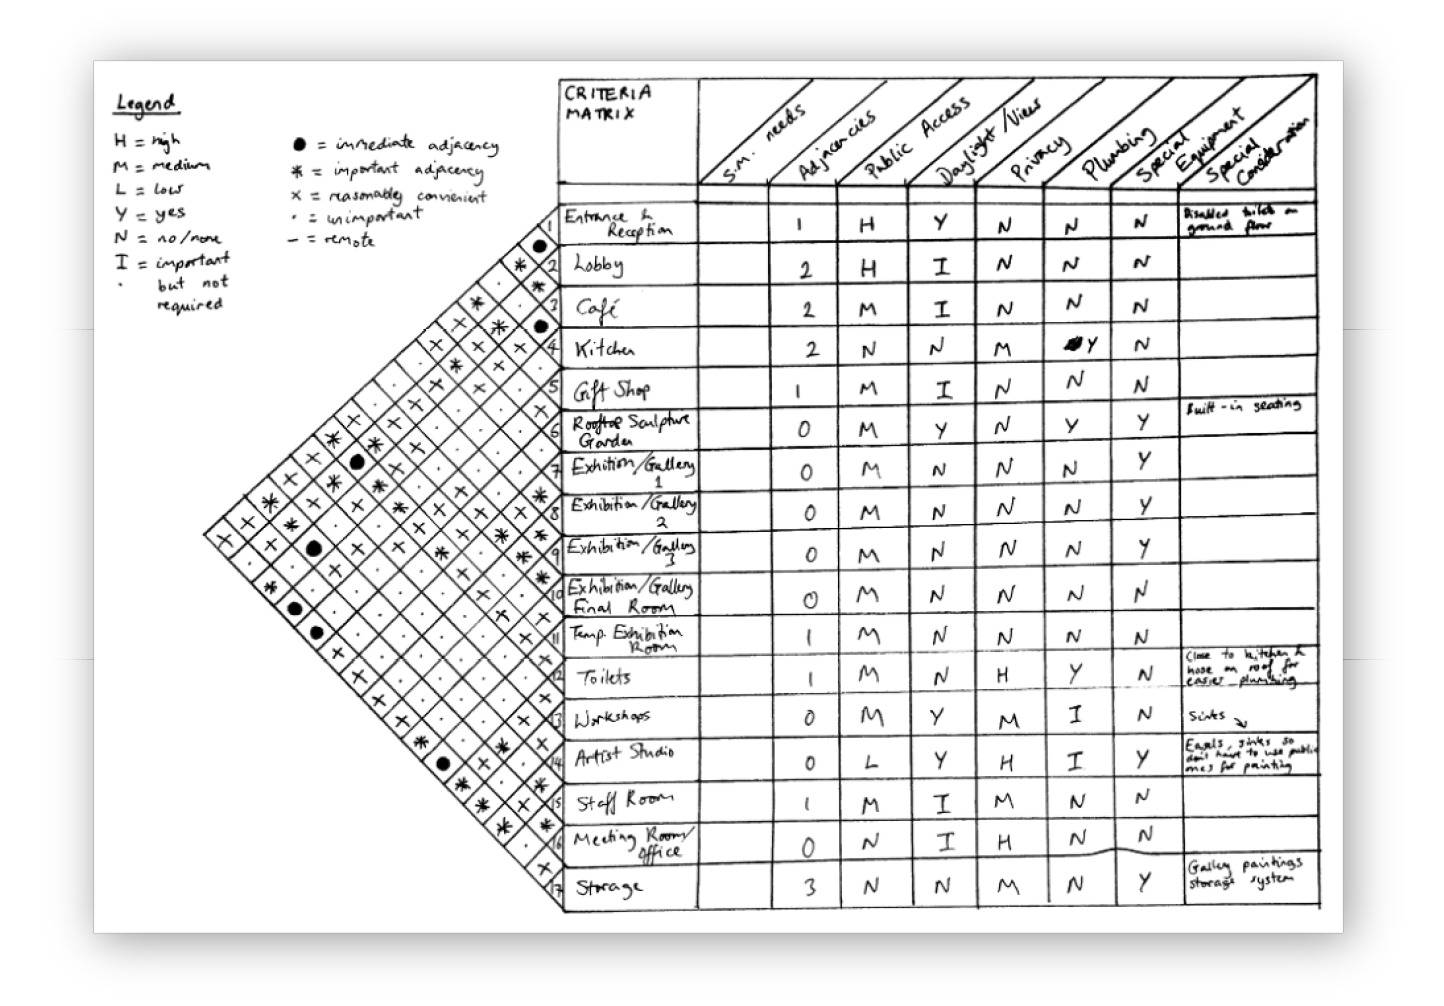 Legend
H = high
M = medium
L = low
Y = yes
N = no/none
I = important
but not
required
● = immediate adjacency
* = important adjacency
x = reasonably convenient
· = unimportant
– = remote
CRITERIA
MATRIX
S.M. needs
Adjacencies
Public Access
Daylight/View
Privacy
Plumbing
Special
Equipment
Special
Consideration
1 Entrance &
Reception 1 H Y N N N Disabled toilet on
ground floor
2 Lobby 2 H I N N N
3 Café 2 M I N N N
4 Kitchen 2 N N M Y N
5 Gift Shop 1 M I N N N
6 Rooftop Sculpture
Garden 0 M Y N Y Y Built-in seating
7 Exhition/Gallery
1 0 M N N N Y
8 Exhibition/Gallery
2 0 M N N N Y
9 Exhibition/Gallery
3 0 M N N N Y
10 Exhibition/Gallery
Final Room 0 M N N N N
11 Temp. Exhibition
Room 1 M N N N N
12 Toilets 1 M N H Y N Close to kitchen &
hose on roof for
easier plumbing
13 Workshops 0 M Y M I N Sinks
14 Artist Studio 0 L Y H I Y Easels, sinks so
don't have to use public
ones for painting
15 Staff Room 1 M I M N N
16 Meeting Room/
office 0 N I H N N
17 Storage 3 N N M N Y Galley paintings
storage system